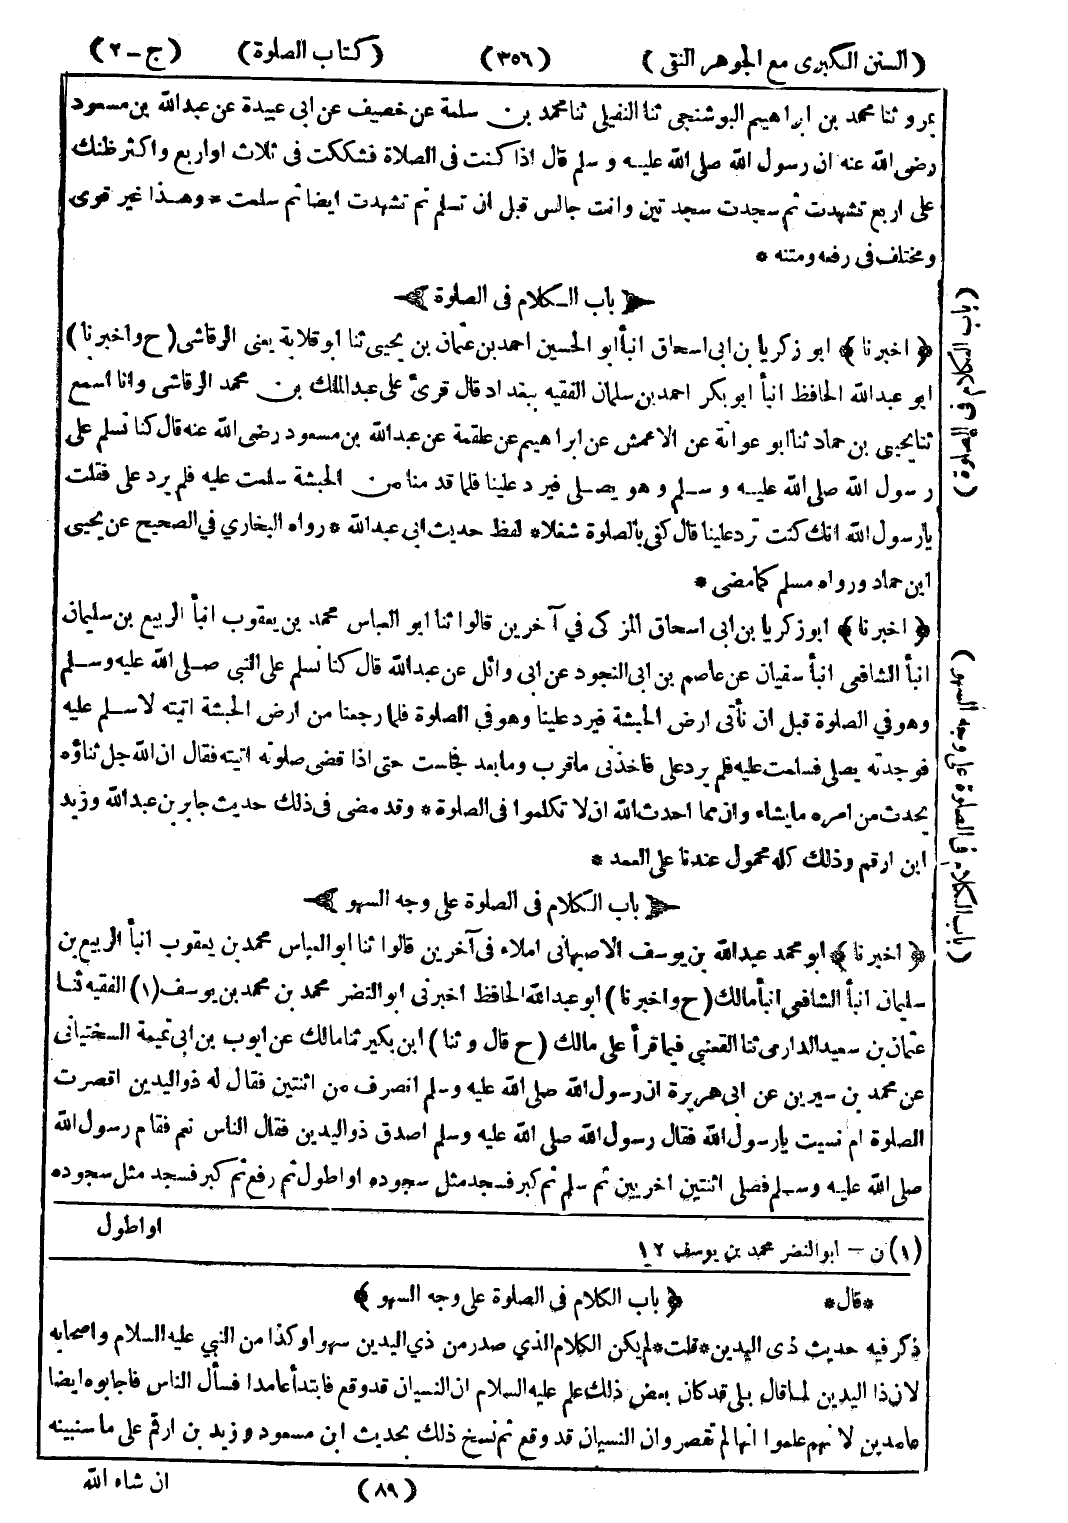 (السنن الكبرى مع الجوهر النقى) (٣٥٦) (كتاب الصلوة) (ج-٢)
بمرو ثنا محمد بن ابراهيم البوشنجى ثنا النفيلى ثنا محمد بن سلمة عن خصيف عن ابى عبيدة عن عبدالله بن مسعود
رضى الله عنه ان رسول الله صلى الله عليه و سلم قال اذا كنت فى الصلاة فشككت فى ثلاث او اربع و اكثر ظنك
على اربع تشهدت ثم سجدت سجد تين و انت جالس قبل ان تسلم ثم تشهدت ايضا ثم سلمت * وهذا غير قوى
و مختلف فى رفعه و متنه *
باب الكلام فى الصلوة
﴿اخبرنا﴾ ابو زكريا بن ابى اسحاق انبأ ابو الحسين احمد بن عثمان بن يحيى ثنا ابو قلابة يعنى الرقاشى (ح و اخبرنا)
ابو عبدالله الحافظ انبأ ابو بكر احمد بن سلمان الفقيه ببغداد قال قرئ على عبدالملك بن محمد الرقاشى وانا اسمع
ثنا يحيى بن حماد ثنا ابو عوانة عن الاعمش عن ابراهيم عن علقمة عن عبدالله بن مسعود رضى الله عنه قال كنا نسلم على
رسول الله صلى الله عليه و سلم و هو يصلى فيرد علينا فلما قدمنا من الحبشة سلمت عليه فلم يرد على فقلت
يا رسول الله انك كنت ترد علينا قال كفى بالصلوة شغلا * لفظ حديث ابى عبدالله * رواه البخاري في الصحيح عن يحيى
ابن حماد ورواه مسلم كما مضى *
﴿اخبرنا﴾ ابو زكريا بن ابى اسحاق المزكى في آخرين قالوا ثنا ابو العباس محمد بن يعقوب انبأ الربيع بن سليمان
انبأ الشافعى انبأ سفيان عن عاصم بن ابى النجود عن ابى وائل عن عبدالله قال كنا نسلم على النبى صلى الله عليه وسلم
وهو في الصلوة قبل ان نأتى ارض الحبشة فيرد علينا وهو في الصلوة فلما رجعنا من ارض الحبشة اتيته لاسلم عليه
فوجدته يصلى فسلمت عليه فلم يرد على فاخذنى ما قرب وما بعد فجلست حتى اذا قضى صلوته اتيته فقال ان الله جل ثناؤه
يحدث من امره ما يشاء وان مما احدث الله ان لا تكلموا فى الصلوة * وقد مضى فى ذلك حديث جابر بن عبدالله وزيد
ابن ارقم وذلك كله محمول عندنا على العمد *
باب الكلام فى الصلوة على وجه السهو
﴿اخبرنا﴾ ابو محمد عبدالله بن يوسف الاصبهانى املاء فى آخرين قالوا ثنا ابو العباس محمد بن يعقوب انبأ الربيع بن
سليمان انبأ الشافعى انبأ مالك (ح و اخبرنا) ابو عبدالله الحافظ اخبرنى ابو النضر محمد بن محمد بن يوسف (١) الفقيه ثنا
عثمان بن سعيد الدارمى ثنا القعنبي فيما قرأ على مالك (ح قال و ثنا) ابن بكير ثنا مالك عن ايوب بن ابى تميمة السختيانى
عن محمد بن سيرين عن ابى هريرة ان رسول الله صلى الله عليه و سلم انصرف من اثنتين فقال له ذو اليدين اقصرت
الصلوة ام نسيت يا رسول الله فقال رسول الله صلى الله عليه وسلم اصدق ذو اليدين فقال الناس نعم فقام رسول الله
صلى الله عليه وسلم فصلى اثنتين اخريين ثم سلم ثم كبر فسجد مثل سجوده او اطول ثم رفع ثم كبر فسجد مثل سجوده
او اطول
(١) ن - ابو النضر محمد بن يوسف ١٢
*قال* ﴿باب الكلام فى الصلوة على وجه السهو﴾
ذكر فيه حديث ذى اليدين *قلت* لم يكن الكلام الذي صدر من ذي اليدين سهوا وكذا من النبي عليه السلام و اصحابه
لان ذا اليدين لما قال بلى قد كان بعض ذلك علم عليه السلام ان النسيان قد وقع فابتدأ عامدا فسأل الناس فاجابوه ايضا
عامدين لانهم علموا انها لم تقصر وان النسيان قد وقع ثم نسخ ذلك بحديث ابن مسعود و زيد بن ارقم على ما سنبينه
ان شاء الله
(٨٩)
(باب الكلام فى الصلوة)
(باب الكلام فى الصلوة على وجه السهو)